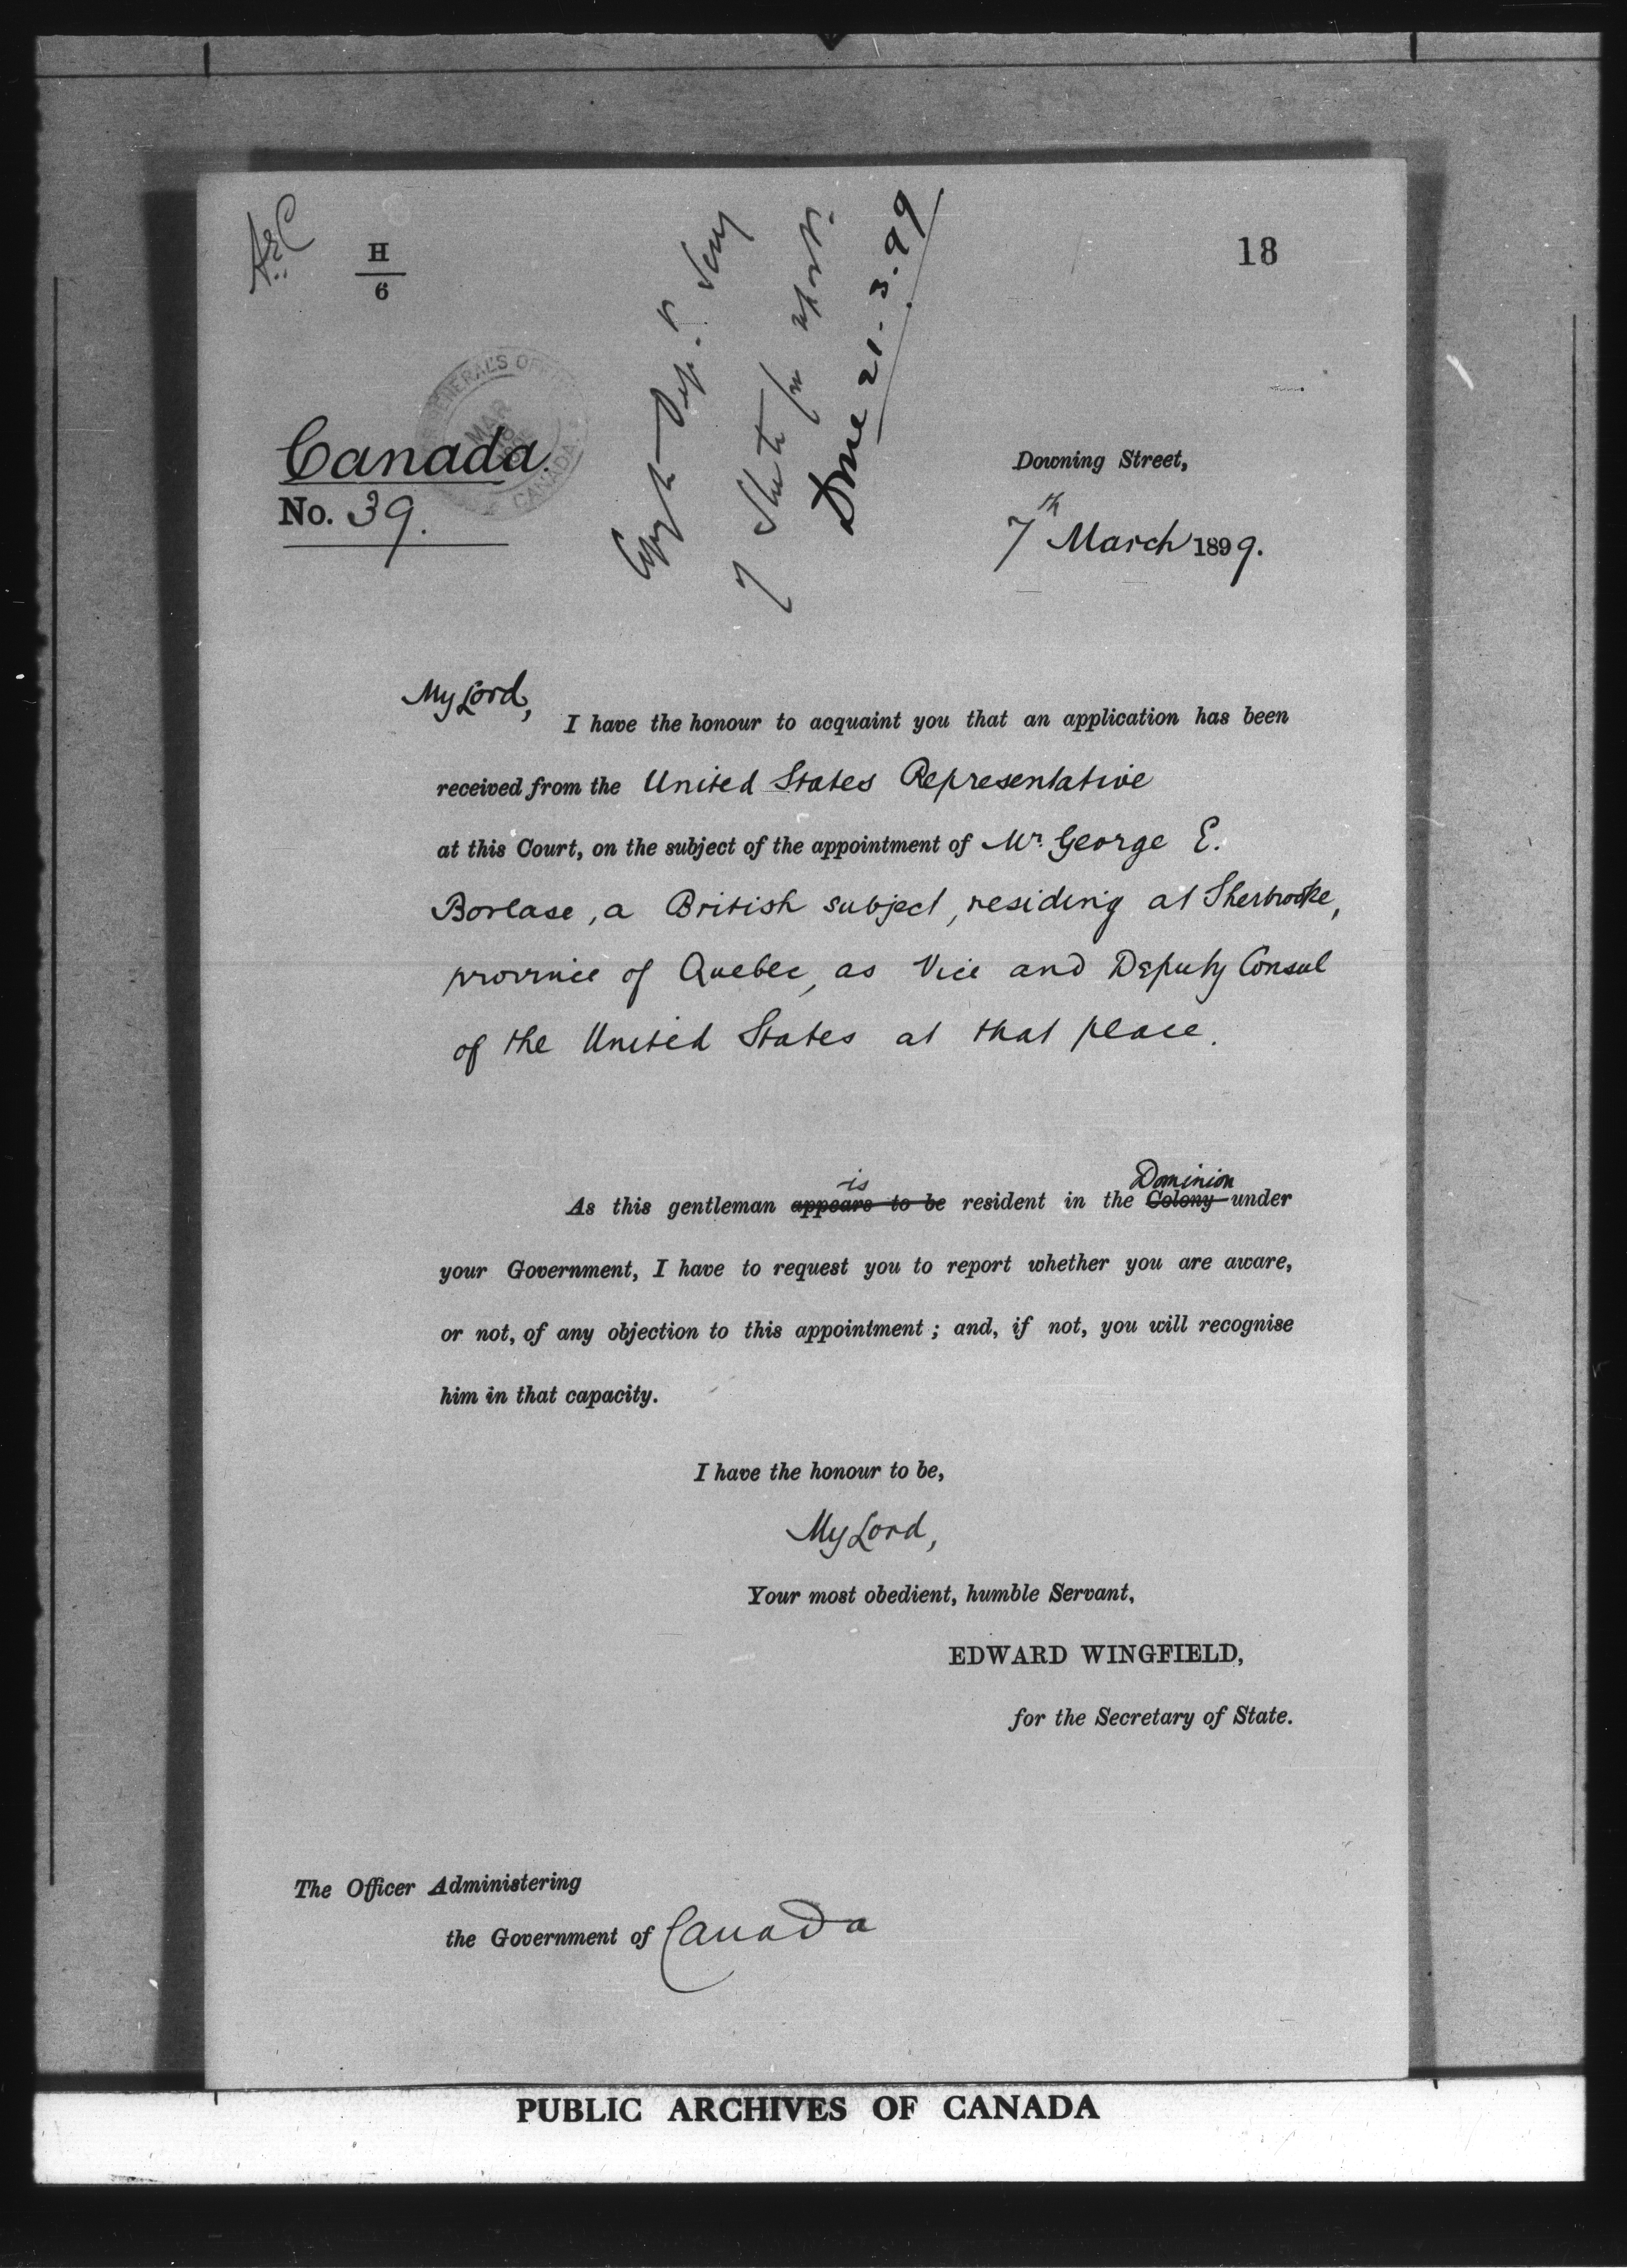 H
6
18
GENERAL'S OFFICE
MAR
CANADA
Canada.
No. 39.
Done 21.3.99
Downing Street,
7th March 1899.
My Lord,
I have the honour to acquaint you that an application has been
received from the United States Representative
at this Court, on the subject of the appointment of Mr. George E.
Borlase, a British subject, residing at Sherbrooke,
province of Quebec, as Vice and Deputy Consul
of the United States at that place.
is Dominion
As this gentleman appears to be resident in the Colony under
your Government, I have to request you to report whether you are aware,
or not, of any objection to this appointment; and, if not, you will recognise
him in that capacity.
I have the honour to be,
My Lord,
Your most obedient, humble Servant,
EDWARD WINGFIELD,
for the Secretary of State.
The Officer Administering
the Government of Canada
PUBLIC ARCHIVES OF CANADA